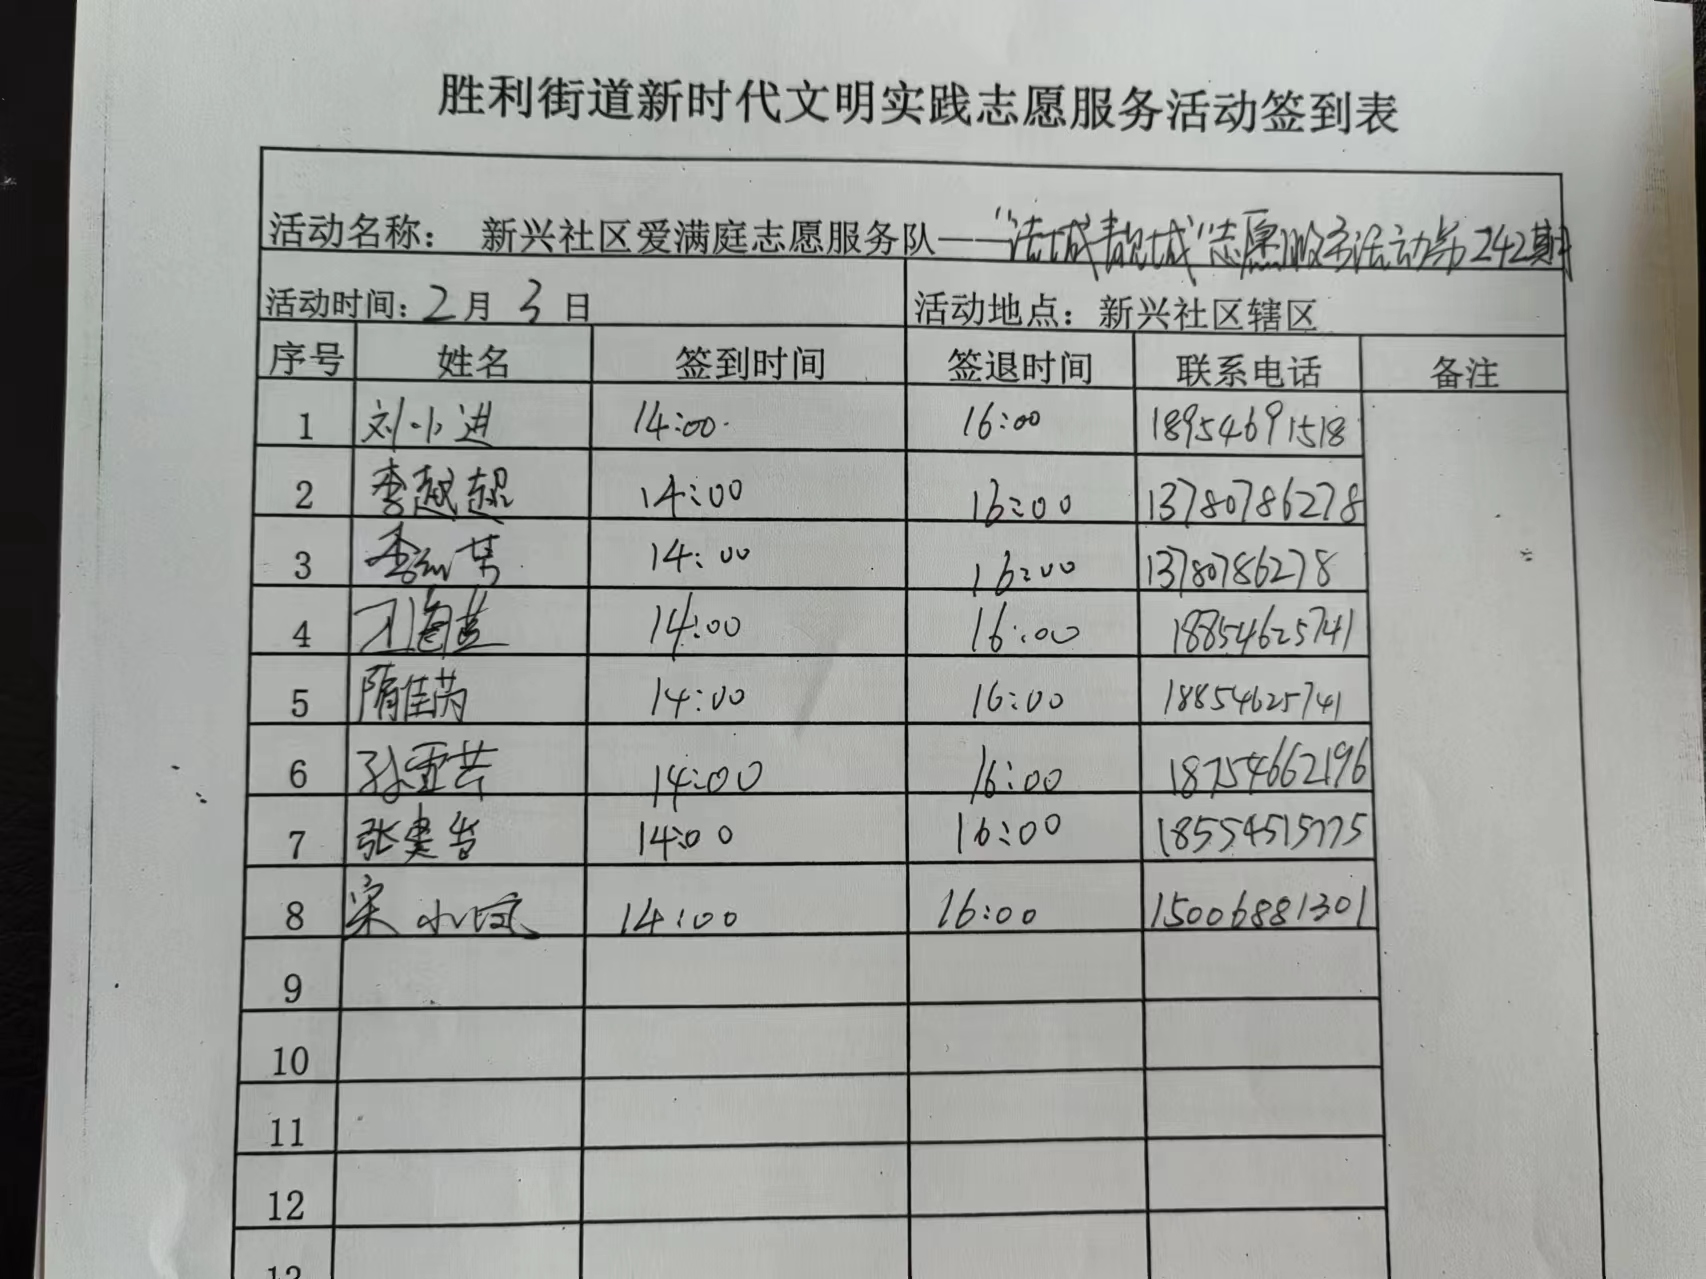 胜利街道新时代文明实践志愿服务活动签到表
活动名称： 新兴社区爱满庭志愿服务队——“洁城靓城”志愿服务活动第242期
活动时间：2月3日 活动地点：新兴社区辖区
序号 姓名 签到时间 签退时间 联系电话 备注
1 刘小进 14:00 16:00 18954691518
2 李越超 14:00 16:00 13780786278
3 14:00 16:00 13780786278
4 14:00 16:00 18854625741
5 隋佳芮 14:00 16:00 18854625741
6 孙亚芸 14:00 16:00 18754662196
7 张建 14:00 16:00 18554515775
8 宋小 14:00 16:00 15006881301
9
10
11
12
13